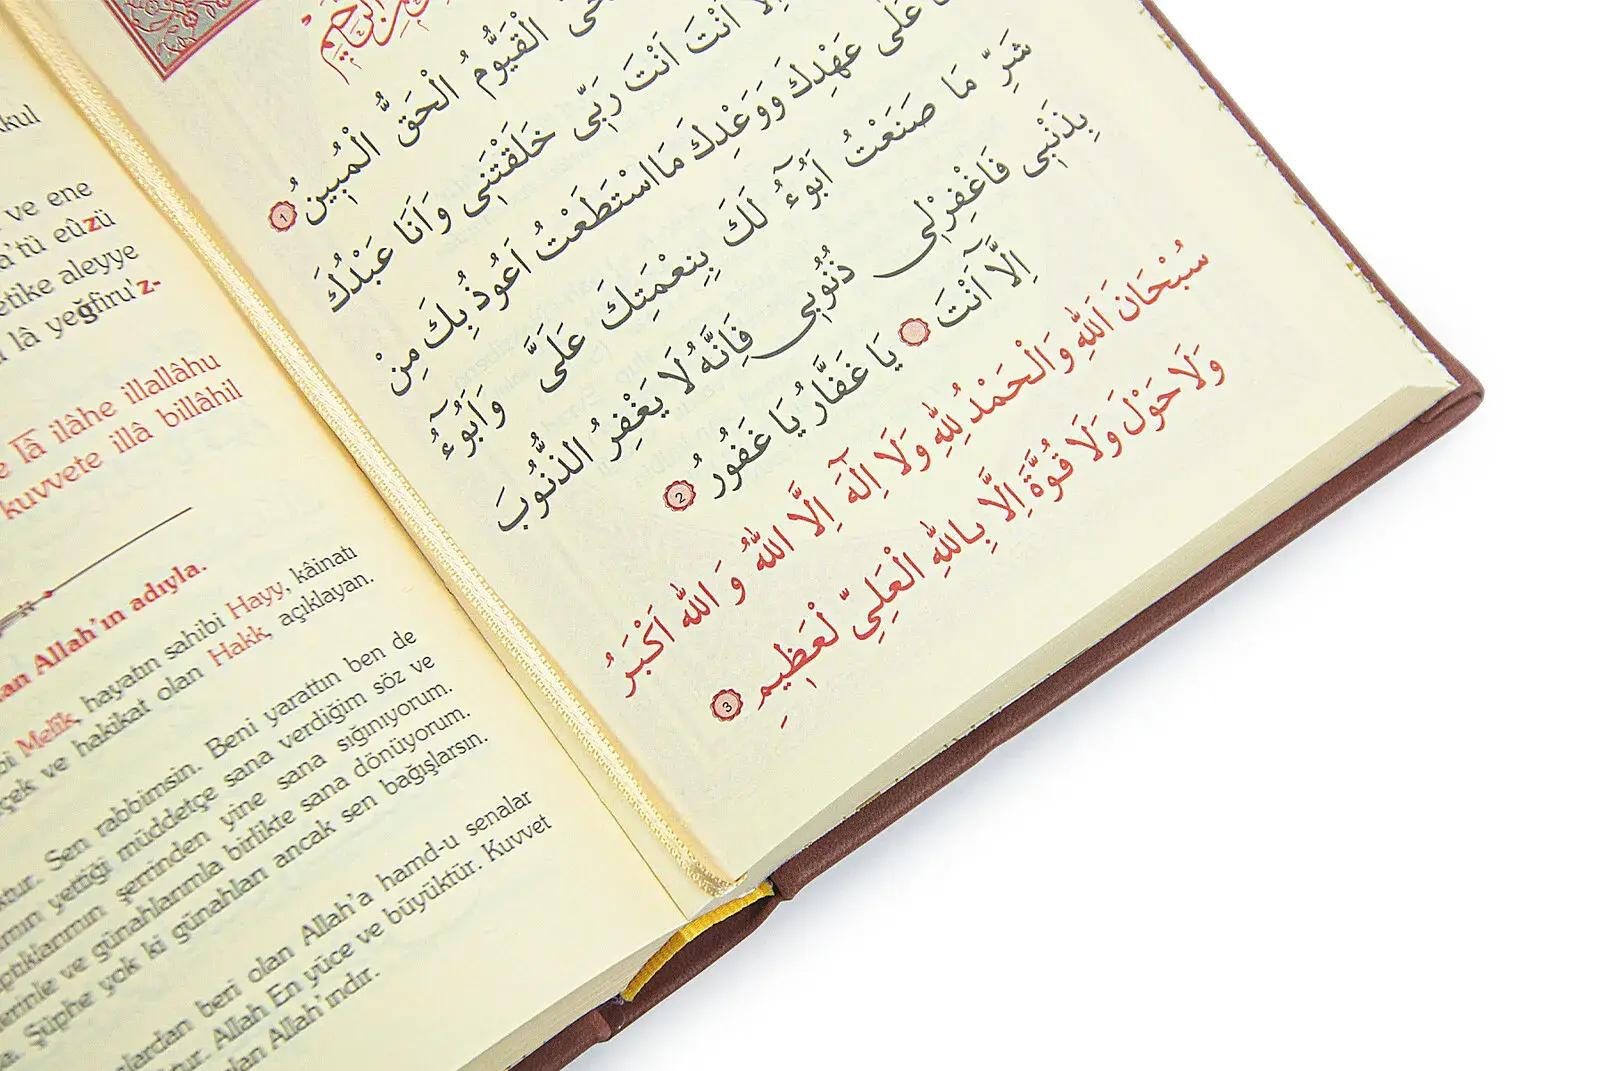 kul
ve ene
a'tü eûzü
etike aleyye
lâ yeğfiru'z-
lâ ilâhe illallâhu
kuvvete illâ billâhil
Allah'ın adıyla.
Melîk, hayatın sahibi Hayy, kâinatı
ve hakikat olan Hakk, açıklayan.
Sen rabbimsin. Beni yarattın ben de
yettiği müddetçe sana verdiğim söz ve
şerrinden yine sana sığınıyorum.
ve günahlarımla birlikte sana dönüyorum.
Şüphe yok ki günahları ancak sen bağışlarsın.
beri olan Allah'a hamd-u senalar
Allah En yüce ve büyüktür. Kuvvet
Allah'ındır.
الْقَيُّومُ الْحَقُّ الْمُبٖينُ 1
اِلَّا اَنْتَ اَنْتَ رَبّٖى خَلَقْتَنٖى وَاَنَا عَبْدُكَ
عَلٰى عَهْدِكَ وَوَعْدِكَ مَا اسْتَطَعْتُ اَعُوذُ بِكَ مِنْ
شَرِّ مَا صَنَعْتُ اَبُٓوءُ لَكَ بِنِعْمَتِكَ عَلَىَّ وَاَبُٓوءُ
بِذَنْبٖى فَاغْفِرْلٖى ذُنُوبٖى فَاِنَّهُ لَا يَغْفِرُ الذُّنُوبَ
اِلَّٓا اَنْتَ يَا غَفَّارُ يَا غَفُورُ 2
سُبْحَانَ اَللّٰهِ وَالْحَمْدُ لِلّٰهِ وَلَا اِلٰهَ اِلَّا اللّٰهُ وَ اللّٰهُ اَكْبَرُ
وَلَا حَوْلَ وَلَا قُوَّةَ اِلَّا بِاللّٰهِ الْعَلِىِّ لْعَظٖيمِ 3